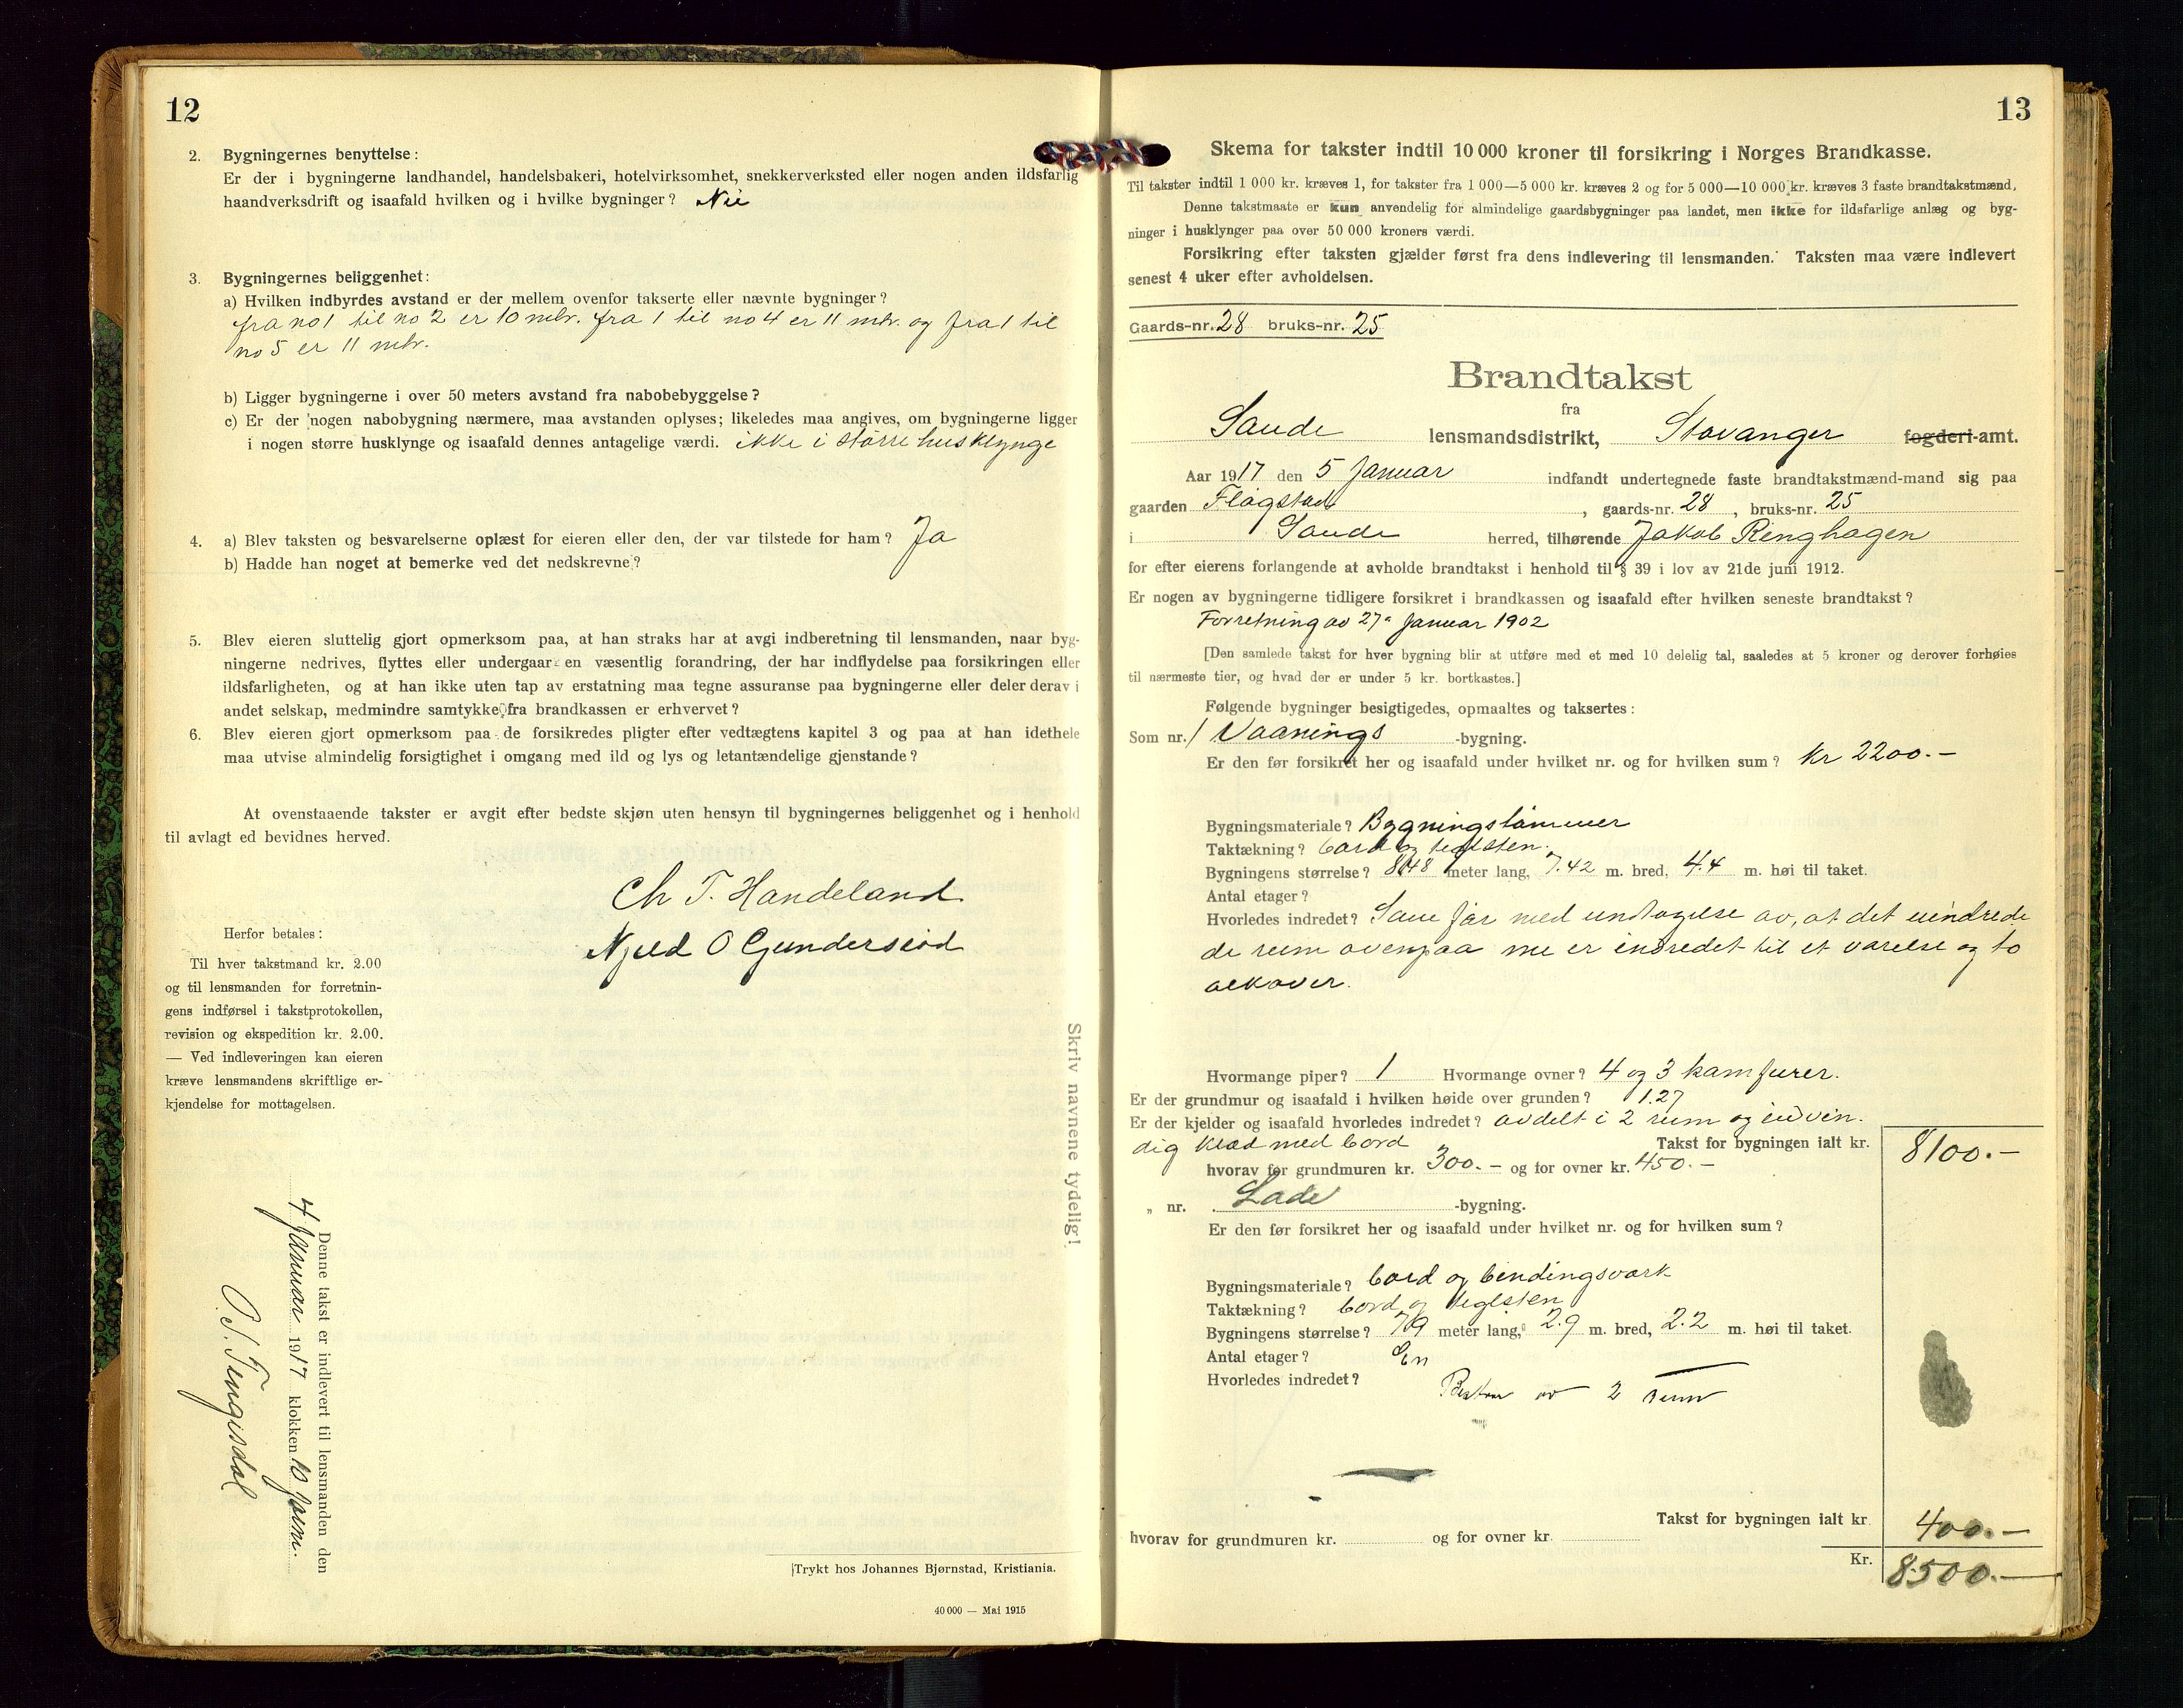 12
2. Bygningernes benyttelse:
Er der i bygningerne landhandel, handelsbakeri, hotelvirksomhet, snekkerverksted eller nogen anden ildsfarlig
haandverksdrift og isaafald hvilken og i hvilke bygninger? Nei
3. Bygningernes beliggenhet:
a) Hvilken indbyrdes avstand er der mellem ovenfor takserte eller nævnte bygninger?
fra no 1 til no 2 er 10 mtr. fra 1 til no 4 er 11 mtr. og fra 1 til
no 5 er 11 mtr.
b) Ligger bygningerne i over 50 meters avstand fra nabobebyggelse?
c) Er der nogen nabobygning nærmere, maa avstanden oplyses; likeledes maa angives, om bygningerne ligger
i nogen større husklynge og isaafald dennes antagelige værdi. ikke i større husklynge
4. a) Blev taksten og besvarelserne oplæst for eieren eller den, der var tilstede for ham? Ja
b) Hadde han noget at bemerke ved det nedskrevne?
5. Blev eieren sluttelig gjort opmerksom paa, at han straks har at avgi indberetning til lensmanden, naar byg-
ningerne nedrives, flyttes eller undergaar en væsentlig forandring, der har indflydelse paa forsikringen eller
ildsfarligheten, og at han ikke uten tap av erstatning maa tegne assuranse paa bygningerne eller deler derav i
andet selskap, medmindre samtykke fra brandkassen er erhvervet?
6. Blev eieren gjort opmerksom paa de forsikredes pligter efter vedtægtens kapitel 3 og paa at han idethele
maa utvise almindelig forsigtighet i omgang med ild og lys og letantændelige gjenstande?
At ovenstaaende takster er avgit efter bedste skjøn uten hensyn til bygningernes beliggenhet og i henhold
til avlagt ed bevidnes herved.
Ch T. Handeland
Njeld O Gunderseid
Herfor betales:
Til hver takstmand kr. 2.00
og til lensmanden for forretnin-
gens indførsel i takstprotokollen,
revision og ekspedition kr. 2.00.
— Ved indleveringen kan eieren
kræve lensmandens skriftlige er-
kjendelse for mottagelsen.
Skriv navnene tydelig!
Denne takst er indlevert til lensmanden den
4 Januar 1917 klokken 10 form.
O. T. Tengisdal
Trykt hos Johannes Bjørnstad, Kristiania.
40 000 — Mai 1915
13
Skema for takster indtil 10 000 kroner til forsikring i Norges Brandkasse.
Til takster indtil 1 000 kr. kræves 1, for takster fra 1 000—5 000 kr. kræves 2 og for 5 000—10 000 kr. kræves 3 faste brandtakstmænd.
Denne takstmaate er kun anvendelig for almindelige gaardsbygninger paa landet, men ikke for ildsfarlige anlæg og byg-
ninger i husklynger paa over 50 000 kroners værdi.
Forsikring efter taksten gjælder først fra dens indlevering til lensmanden. Taksten maa være indlevert
senest 4 uker efter avholdelsen.
Gaards-nr. 28 bruks-nr. 25
Brandtakst
fra
Saude lensmandsdistrikt, Stavanger fogderi-amt.
Aar 1917 den 5 Januar indfandt undertegnede faste brandtakstmænd-mand sig paa
gaarden Fløgstad, gaards-nr. 28, bruks-nr. 25
i Saude herred, tilhørende Jakob Ringhagen
for efter eierens forlangende at avholde brandtakst i henhold til § 39 i lov av 21de juni 1912.
Er nogen av bygningerne tidligere forsikret i brandkassen og isaafald efter hvilken seneste brandtakst?
Forretning av 27de Januar 1902
[Den samlede takst for hver bygning blir at utføre med et med 10 delelig tal, saaledes at 5 kroner og derover forhøies
til nærmeste tier, og hvad der er under 5 kr. bortkastes.]
Følgende bygninger besigtigedes, opmaaltes og taksertes:
Som nr. 1 Vaanings -bygning.
Er den før forsikret her og isaafald under hvilket nr. og for hvilken sum? kr 2200.-
Bygningsmateriale? Bygningstømmer
Taktækning? bord og teglsten.
Bygningens størrelse? 8.48 meter lang, 7.42 m. bred, 4.4 m. høi til taket.
Antal etager?
Hvorledes indredet? Som før med undtagelse av, at det uindrede
de rum ovenpaa nu er indredet til et værelse og to
alkover.
Hvormange piper? 1 Hvormange ovner? 4 og 3 kamfurer.
Er der grundmur og isaafald i hvilken høide over grunden? 1.27
Er der kjelder og isaafald hvorledes indredet? avdelt i 2 rum og indven.
dig klæd med bord Takst for bygningen ialt kr. 8100.-
hvorav for grundmuren kr. 300.- og for ovner kr. 450.-
„ nr. Lade -bygning.
Er den før forsikret her og isaafald under hvilket nr. og for hvilken sum?
Bygningsmateriale? bord og bindingsverk
Taktækning? bord og teglsten
Bygningens størrelse? 7.9 meter lang, 2.9 m. bred, 2.2 m. høi til taket.
Antal etager? En
Hvorledes indredet? Bestaar av 2 rum
Takst for bygningen ialt kr. 400.-
hvorav for grundmuren kr. og for ovner kr.
Kr. 8500.-